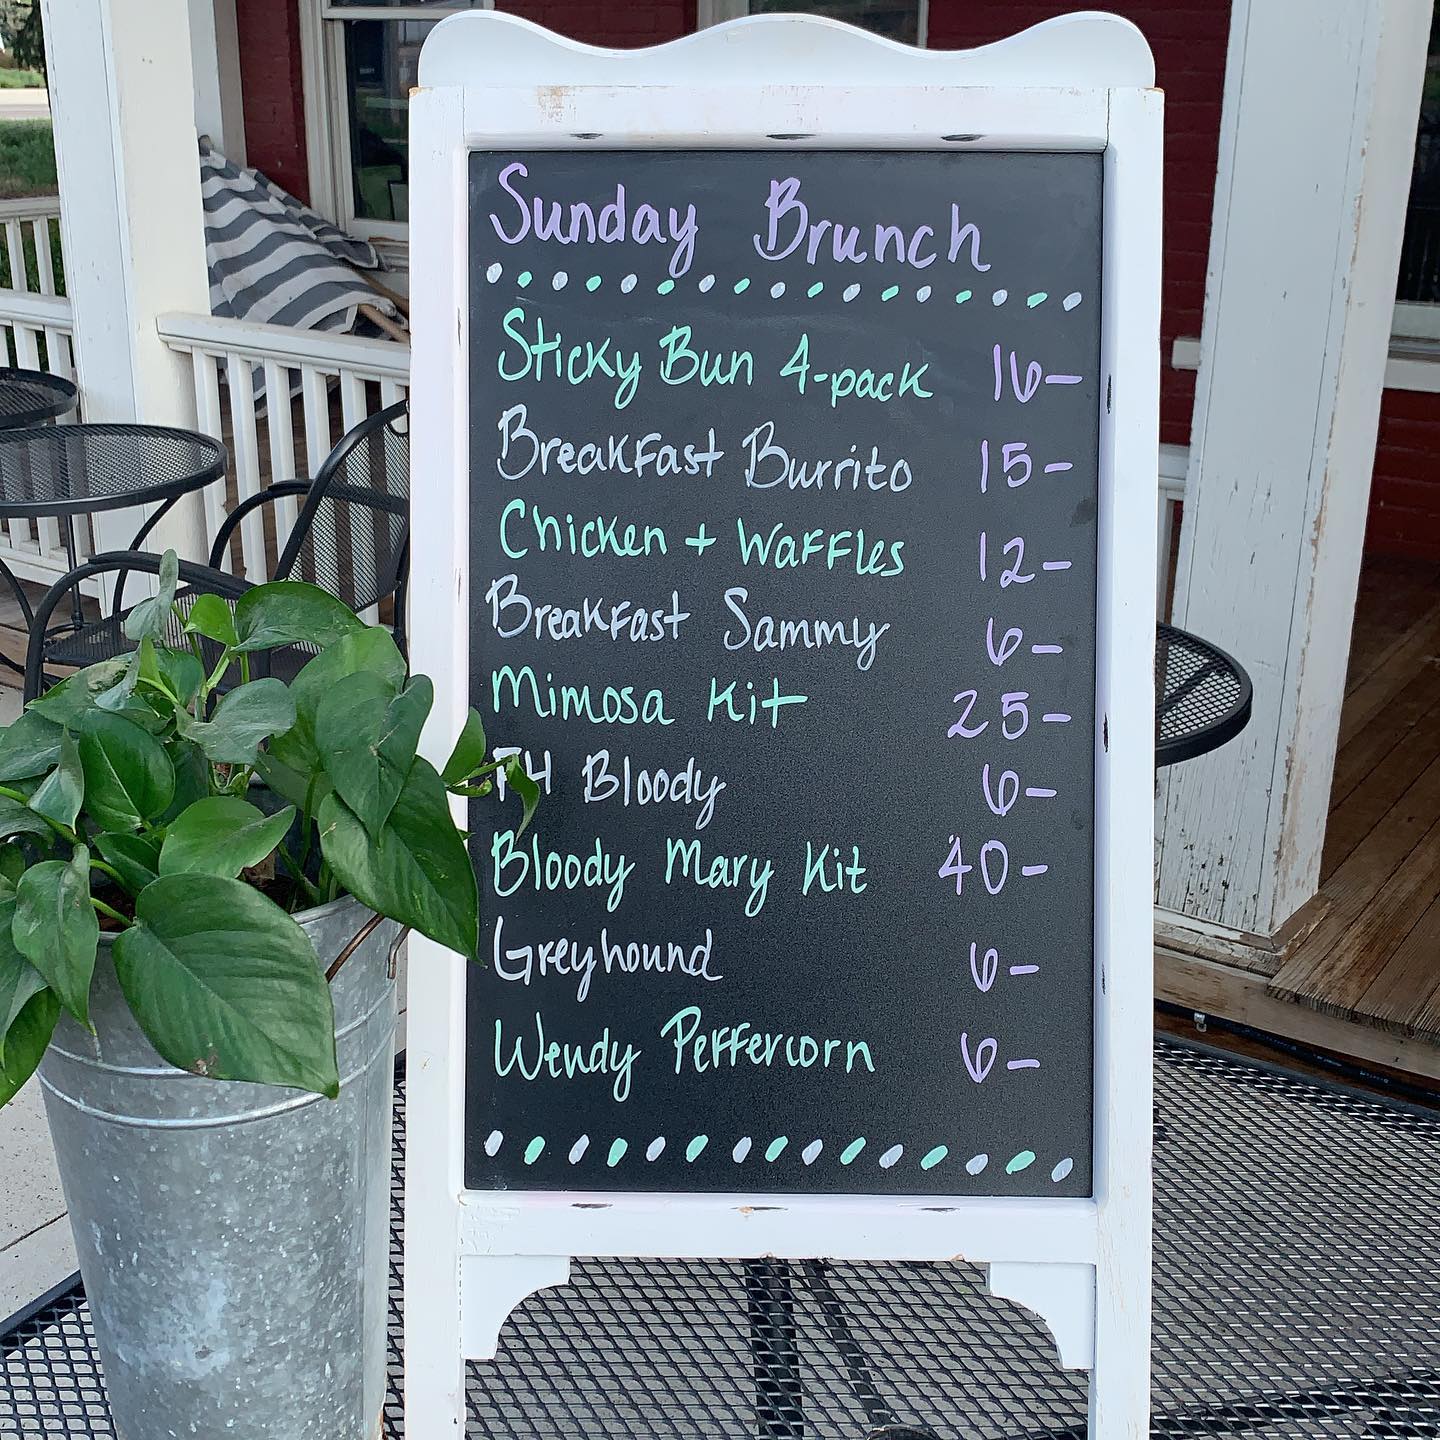 Sunday Brunch
Sticky Bun 4-pack 16-
Breakfast Burrito 15-
Chicken + Waffles 12-
Breakfast Sammy 6-
Mimosa Kit 25-
FH Bloody 6-
Bloody Mary Kit 40-
Greyhound 6-
Wendy Peffercorn 6-